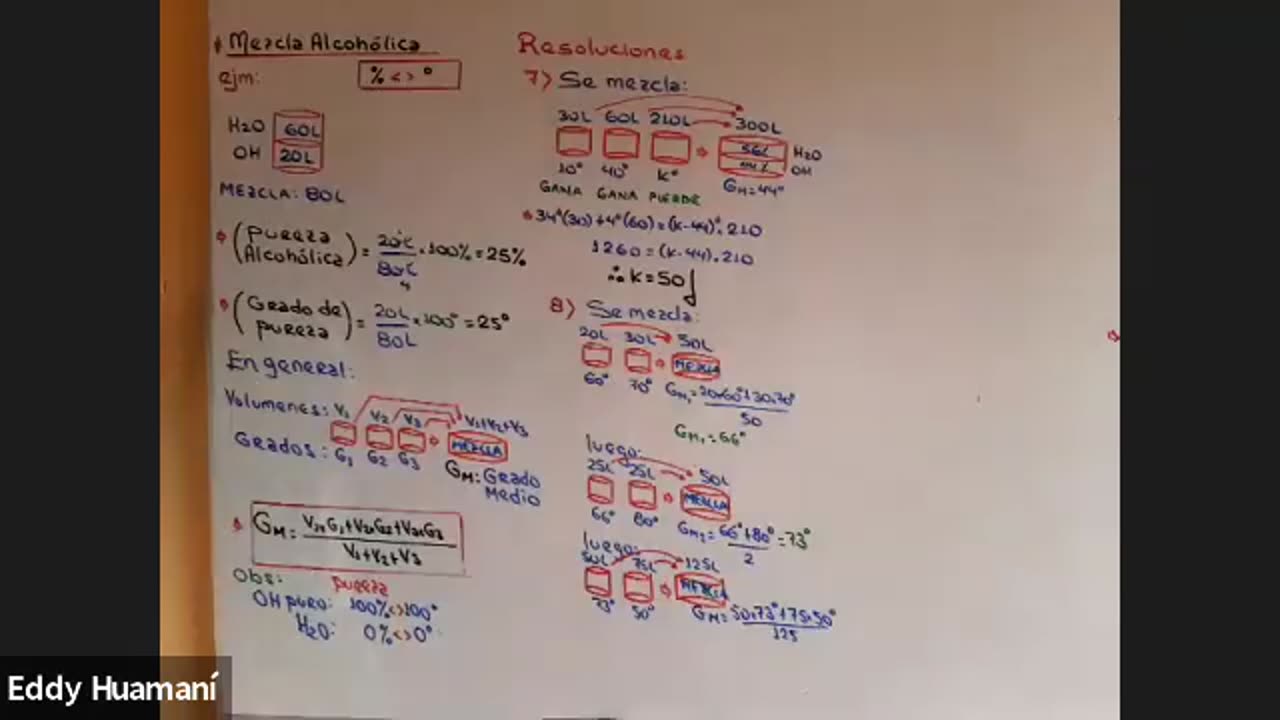 * Mezcla Alcohólica
ejm:
% <> °
H2O 60L
OH 20L
MEZCLA: 80L
(Pureza Alcohólica) = 20L/80L . 100% = 25%
4
(Grado de pureza) = 20L/80L x 100° = 25°
En general:
Volumenes: V1 V2 V3 V1+V2+V3
MEZCLA
Grados: G1 G2 G3
GM: Grado Medio
GM = V1xG1+V2xG2+V3xG3 / V1+V2+V3
Obs: pureza
OH puro: 100% <> 100°
H2O: 0% <> 0°
Resoluciones
7) Se mezcla:
30L 60L 210L 300L
56% H2O
44% OH
10° 40° K° GM=44°
GANA GANA PIERDE
34°(30)+4°(60)=(K-44)°.210
1260=(K-44).210
∴ K=50
8) Se mezcla:
20L 30L 50L
MEZCLA
60° 70° GM1=20x60°+30x70° / 50
GM1=66°
luego:
25L 25L 50L
MEZCLA
66° 80° GM2=66°+80° / 2 =73°
luego:
50L 75L 125L
MEZCLA
73° 50° GM=50x73°+75x50° / 125
Eddy Huamaní